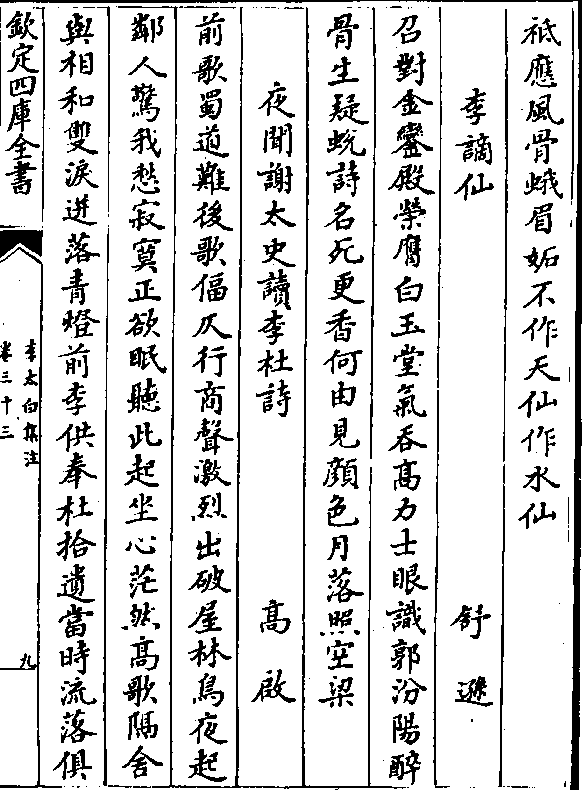 祗應風骨蛾眉妬不作天仙作水仙
李謫仙 舒遜
召對金鑾殿榮膺白玉堂氣吞高力士眼識郭汾陽醉
骨生疑蛻詩名死更香何由見顔色月落照空梁
夜聞謝太史讀李杜詩 高啟
前歌蜀道難後歌偪仄行商聲激烈出破屋林鳥夜起
鄰人驚我愁寂寞正欲眠聽此起坐心茫然高歌隔舍
與相和雙淚迸落青燈前李供奉杜拾遺當時流落俱
欽定四庫全書
李太白集注
卷三十三
九